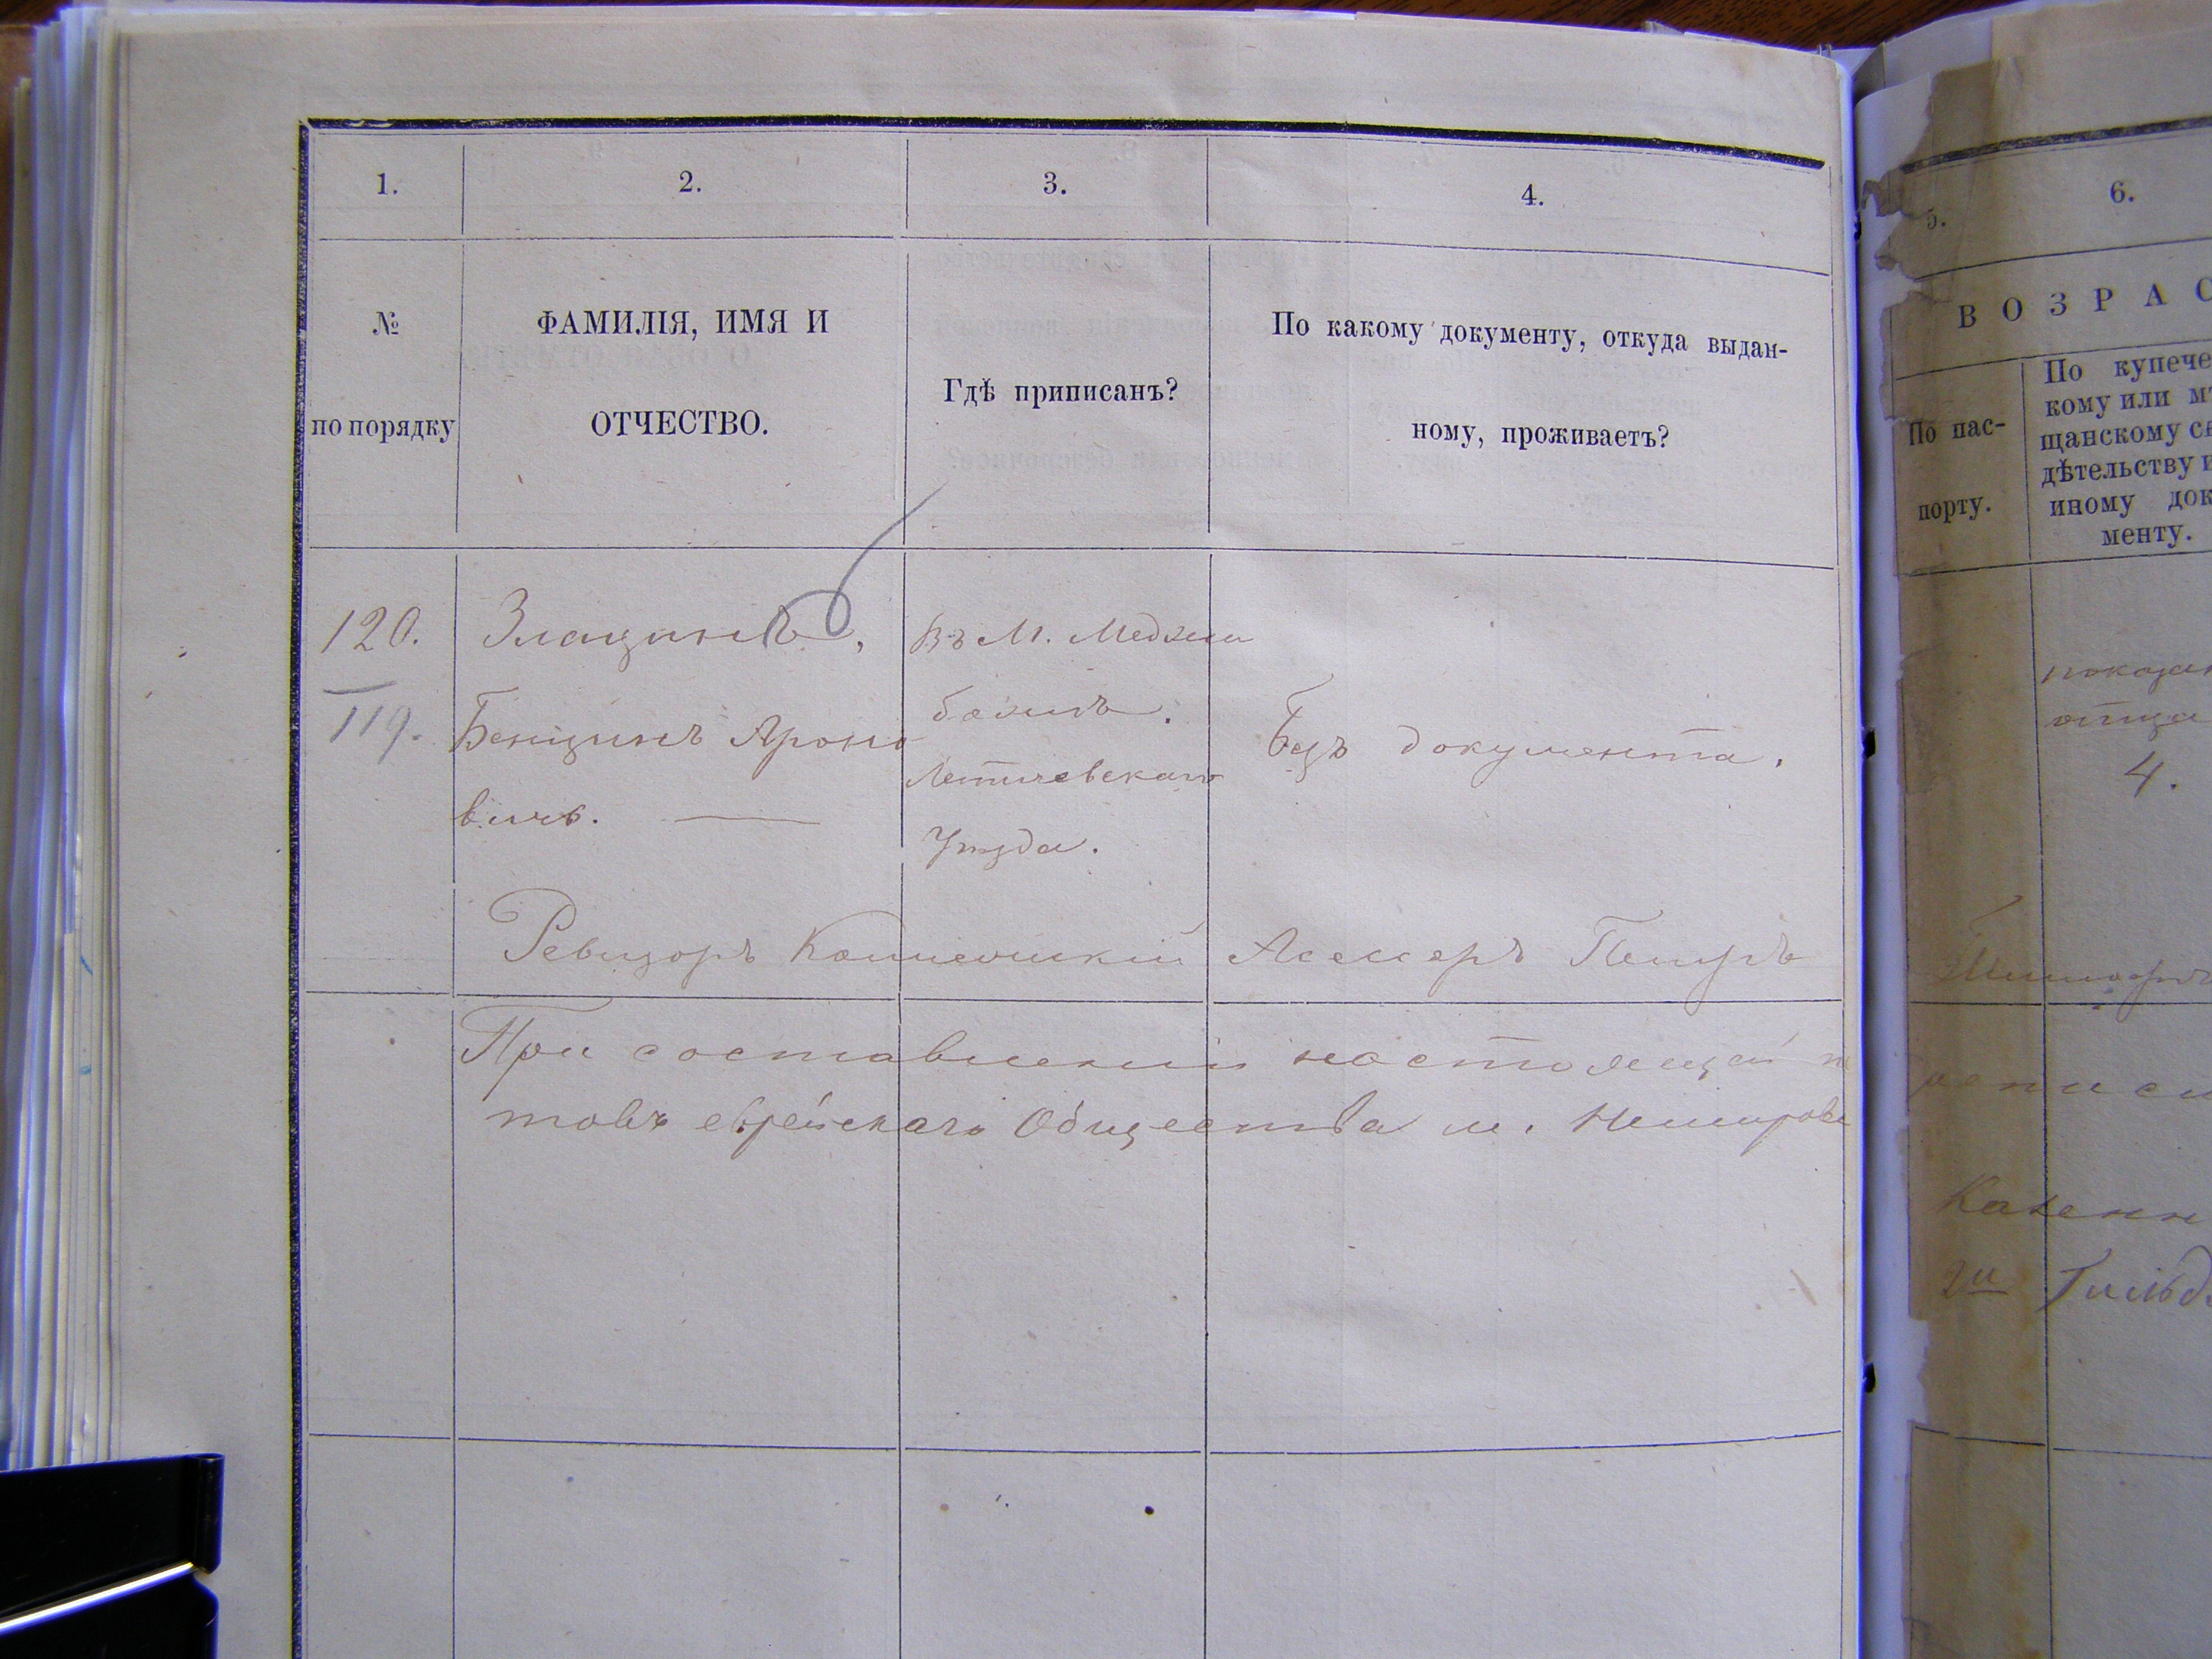 1.
2.
3.
4.
№
по порядку
ФАМИЛІЯ, ИМЯ И
ОТЧЕСТВО.
Гдѣ приписанъ?
По какому документу, откуда выдан-
ному, проживаетъ?
120.
119.
Златинъ,
Бенціинъ Ароно
вичъ.
Въ М. Меджи
божъ.
Летичевскаго
Уѣзда.
Безъ документа.
Ревизоръ Коллежскій Асессоръ
При составленіи настоящей
товъ еврейскаго Общества м. Немирова
5.
6.
ВОЗРАС
По пас-
порту.
По купече
кому или мѣ
щанскому св
дѣтельству и
иному док
менту.
показан
отца
4.
Казенн
2й Гильд